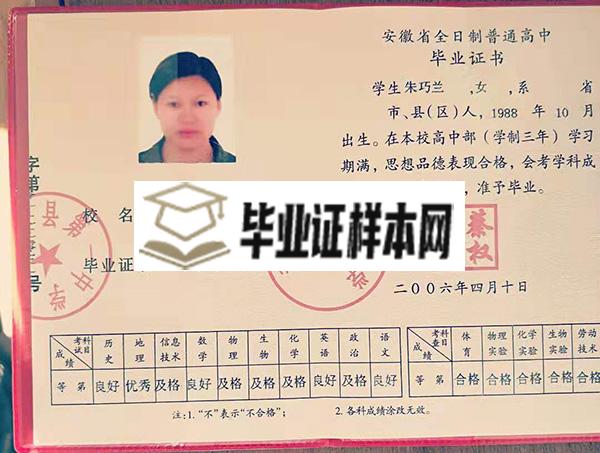 安徽省全日制普通高中
毕业证书
学生朱巧兰,女,系 省
市、县(区)人,1988年10月
出生。在本校高中部(学制三年)学习
期满,思想品德表现合格,会考学科成
,准予毕业。
校名
毕业证
毕业证样本网
蔡
权
二〇〇六年四月十日
字第
号
县第一中学
考试科目 历史 地理 信息技术 数学 物理 生物 化学 英语 政治 语文
成绩
等第 良好 优秀 及格 良好 及格 及格 及格 良好 及格 良好
考查科目 体育 物理实验 化学实验 生物实验 劳动技术
成绩
等第 合格 合格 合格 合格 合格
注:1.“不”表示“不合格”; 2.各科成绩涂改无效。